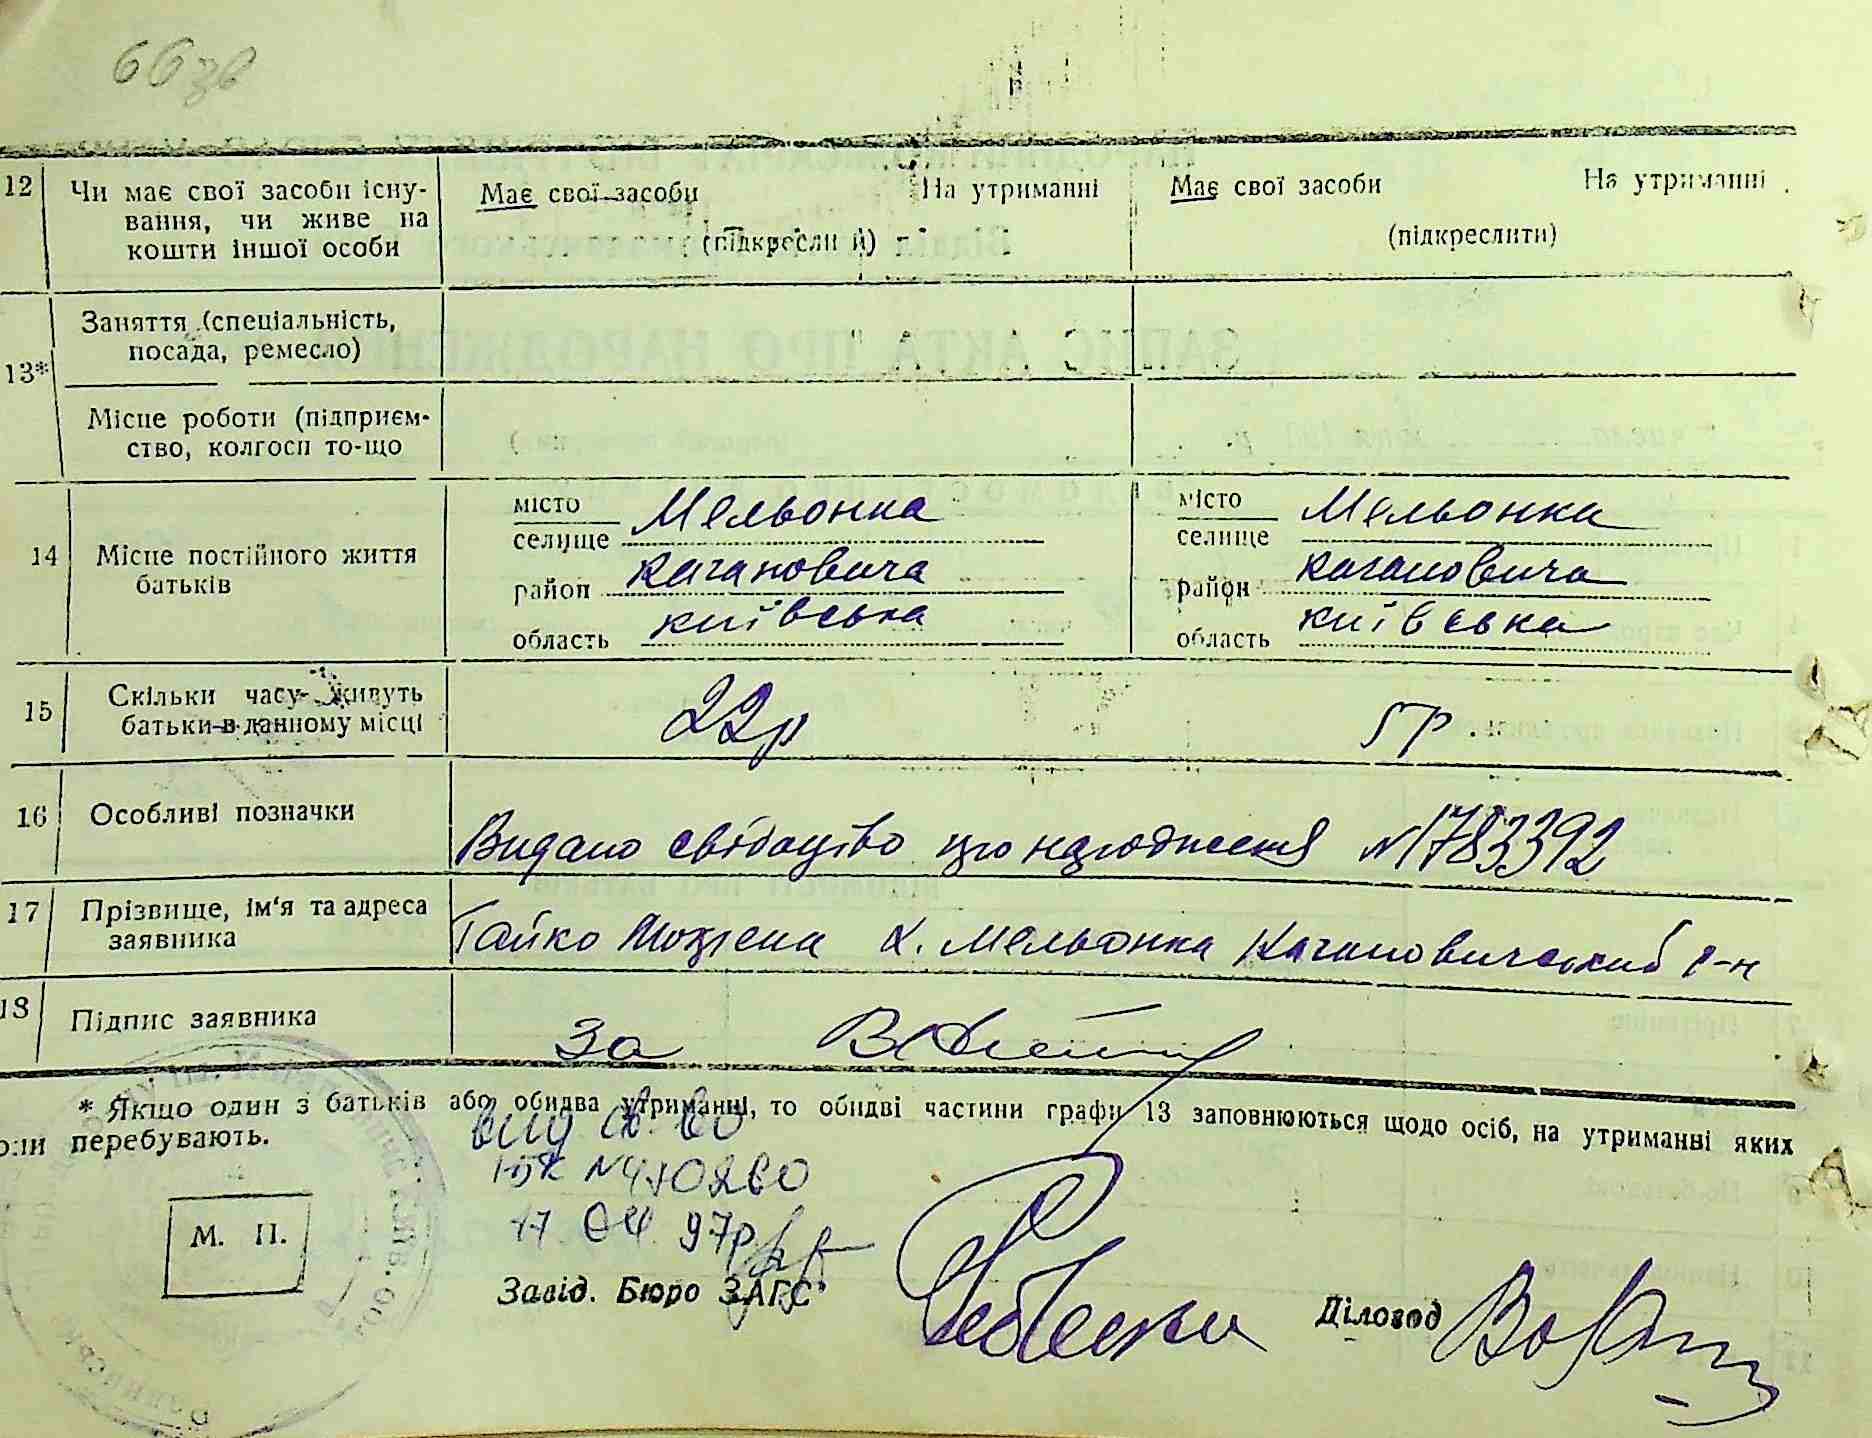 66зв
12 Чи має свої засоби існу- Має свої засоби На утриманні Має свої засоби На утриманні
вання, чи живе на
кошти іншої особи (підкресли и) (підкреслити)
Заняття (спеціальність,
посада, ремесло)
13*
Місце роботи (підприєм-
ство, колгосп то-що
місто Мельонка місто Мельонка
селище селище
14 Місце постійного життя район Кагановича район Кагановича
батьків
область київська область київська
15 Скільки часу живуть 22р 5р.
батьки в данному місці
16 Особливі позначки
Видано свідоцтво про народження №1783392
17 Прізвище, ім'я та адреса
заявника Гайко х. Мельонка Кагановичський р-н
18 Підпис заявника За
* Якщо один з батьків або обидва утриманні, то обидві частини графи 13 заповнюються щодо осіб, на утриманні яких
они перебувають.
вид св во
17 04 97р
М. П.
Завід. Бюро ЗАГС Діловод